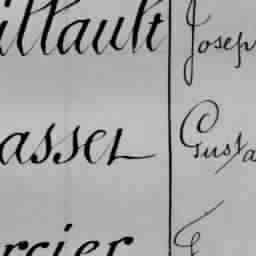 illault Joseph
asset Gusta
rcier